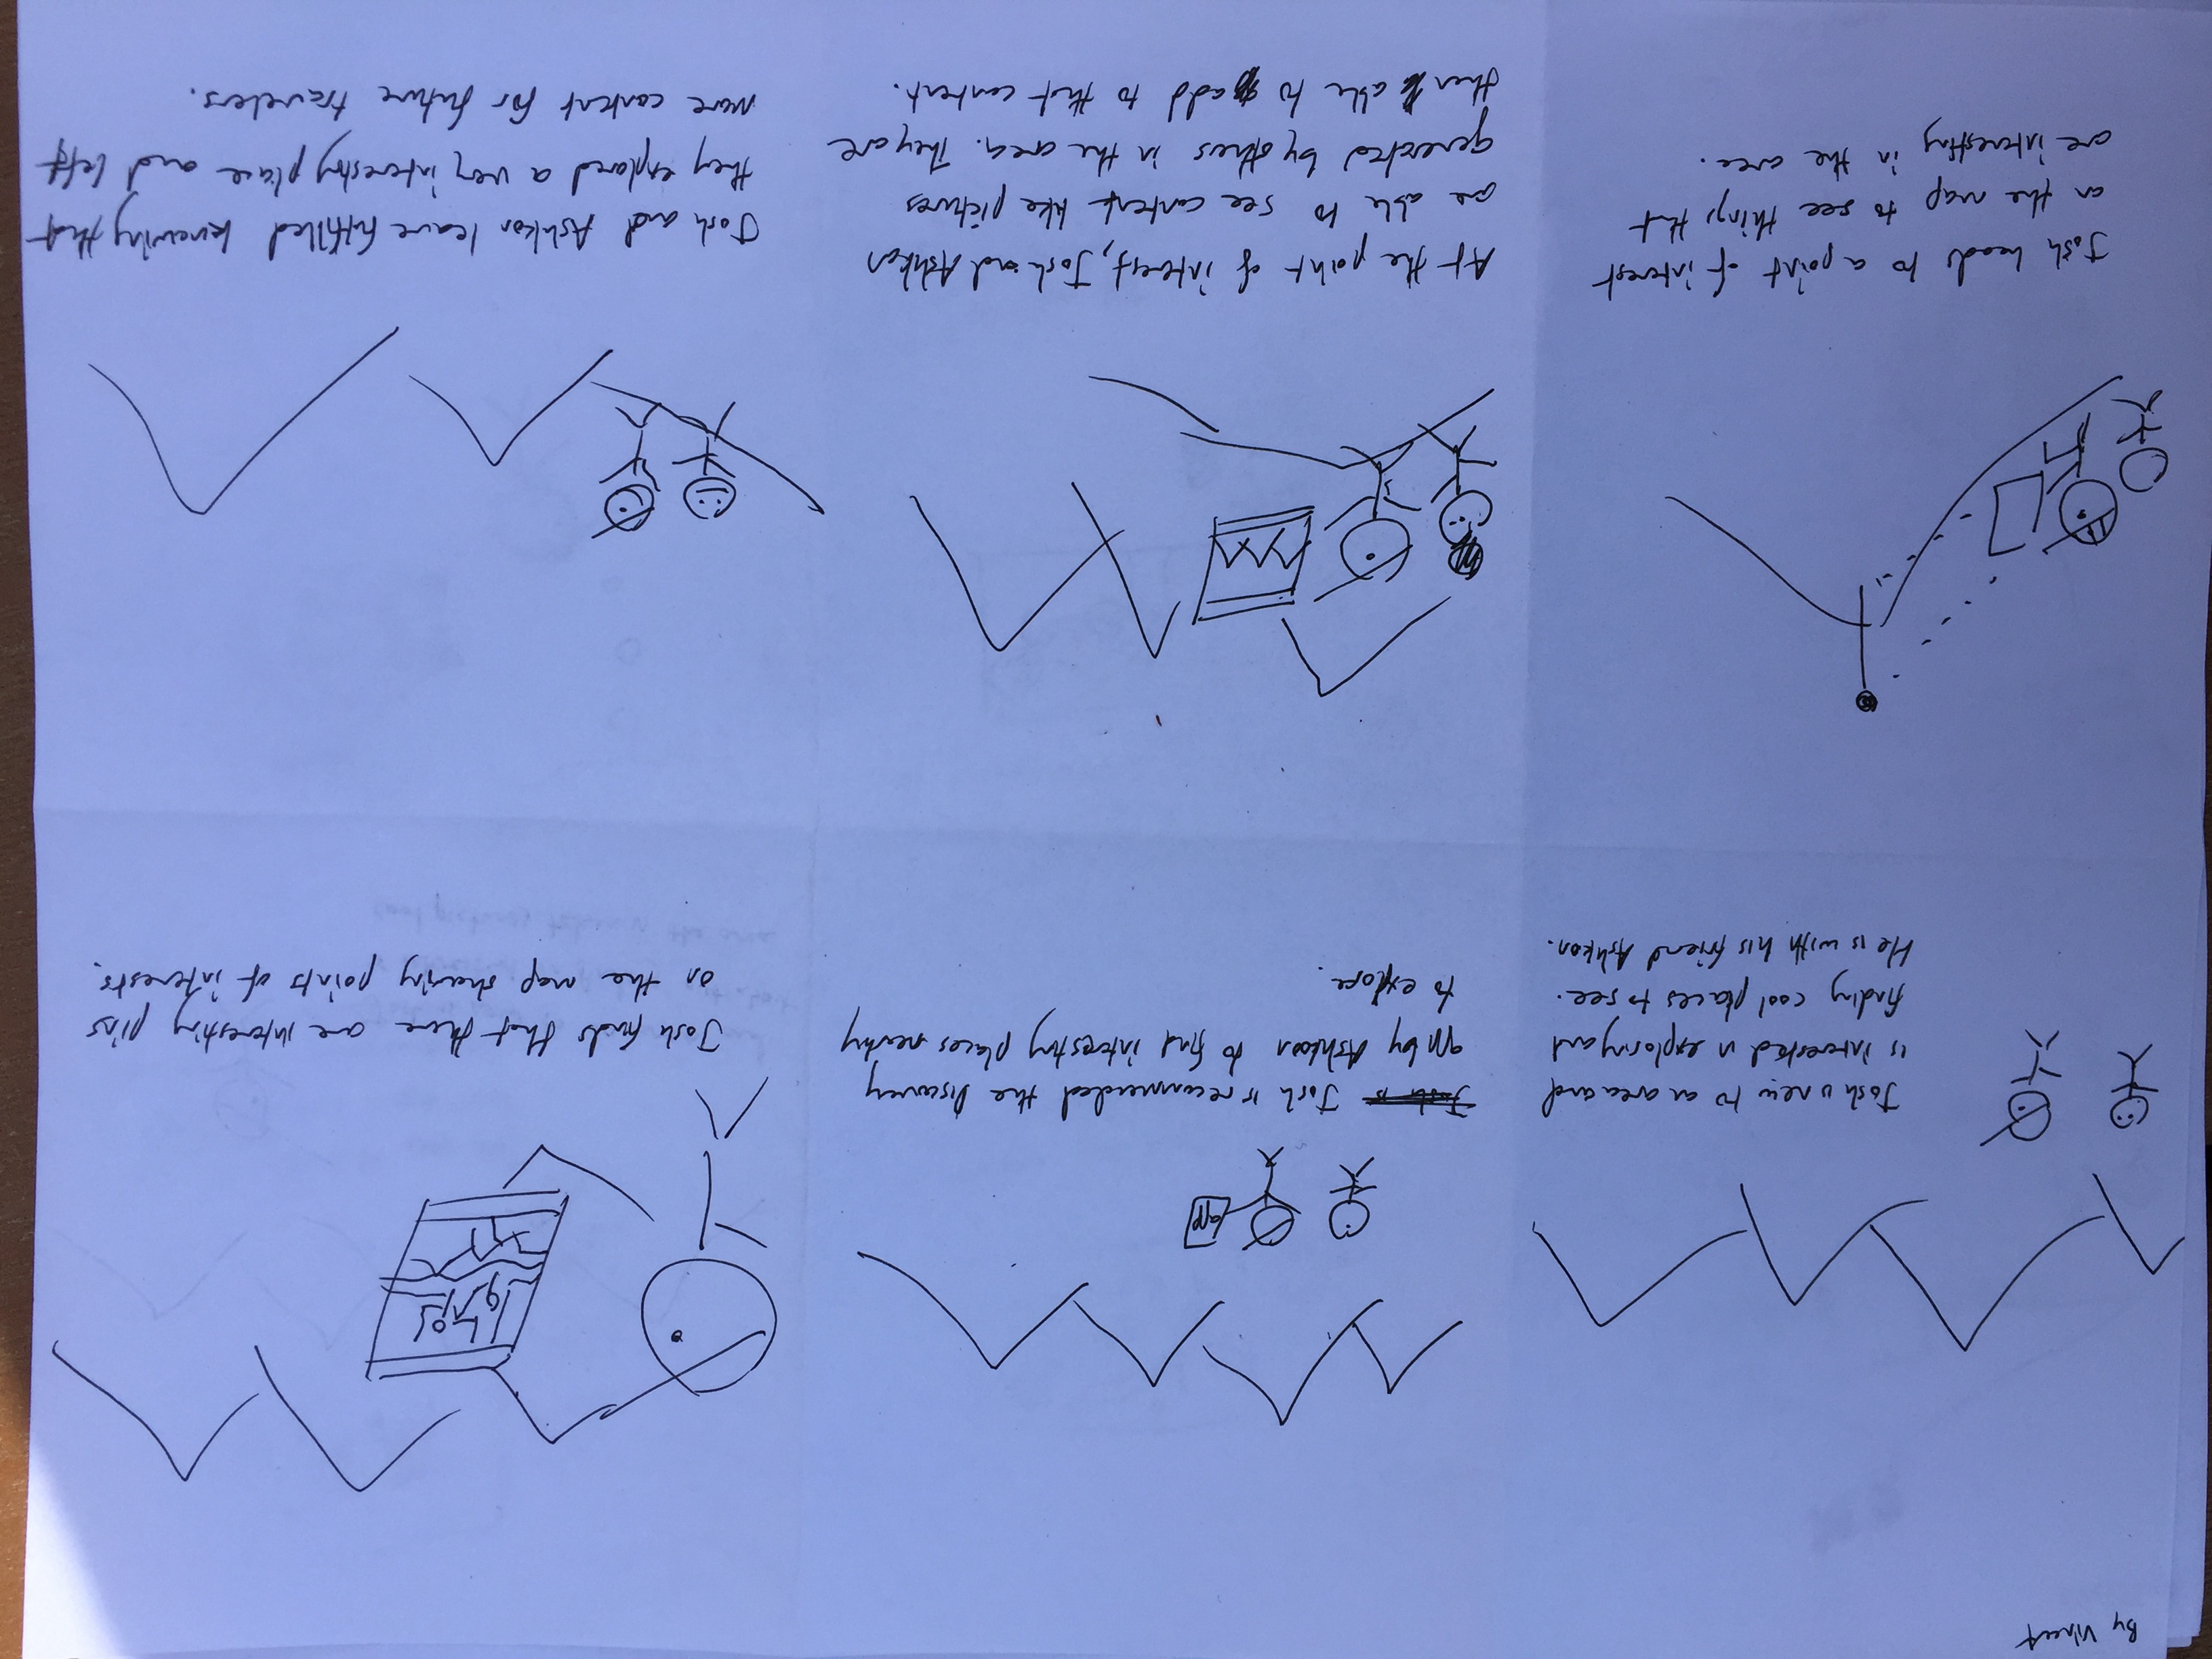 By Vineet
Josh is new to an area and
is interested in exploring and
finding cool places to see.
He is with his friend Ashkon.
app
Josh is Josh is recommended the Discovery
app by Ashkon to find interesting places nearby
to explore.
Josh finds that there are interesting pins
on the map sharing points of interests.
cool pictures taken in the area
Josh heads to a point of interest
on the map to see things that
are interesting in the area.
At the point of interest, Josh and Ashkon
are able to see content like pictures
generated by others in the area. They are
then able to add to that content.
Josh and Ashkon leave fulfilled knowing that
they explored a very interesting place and left
more content for future travelers.